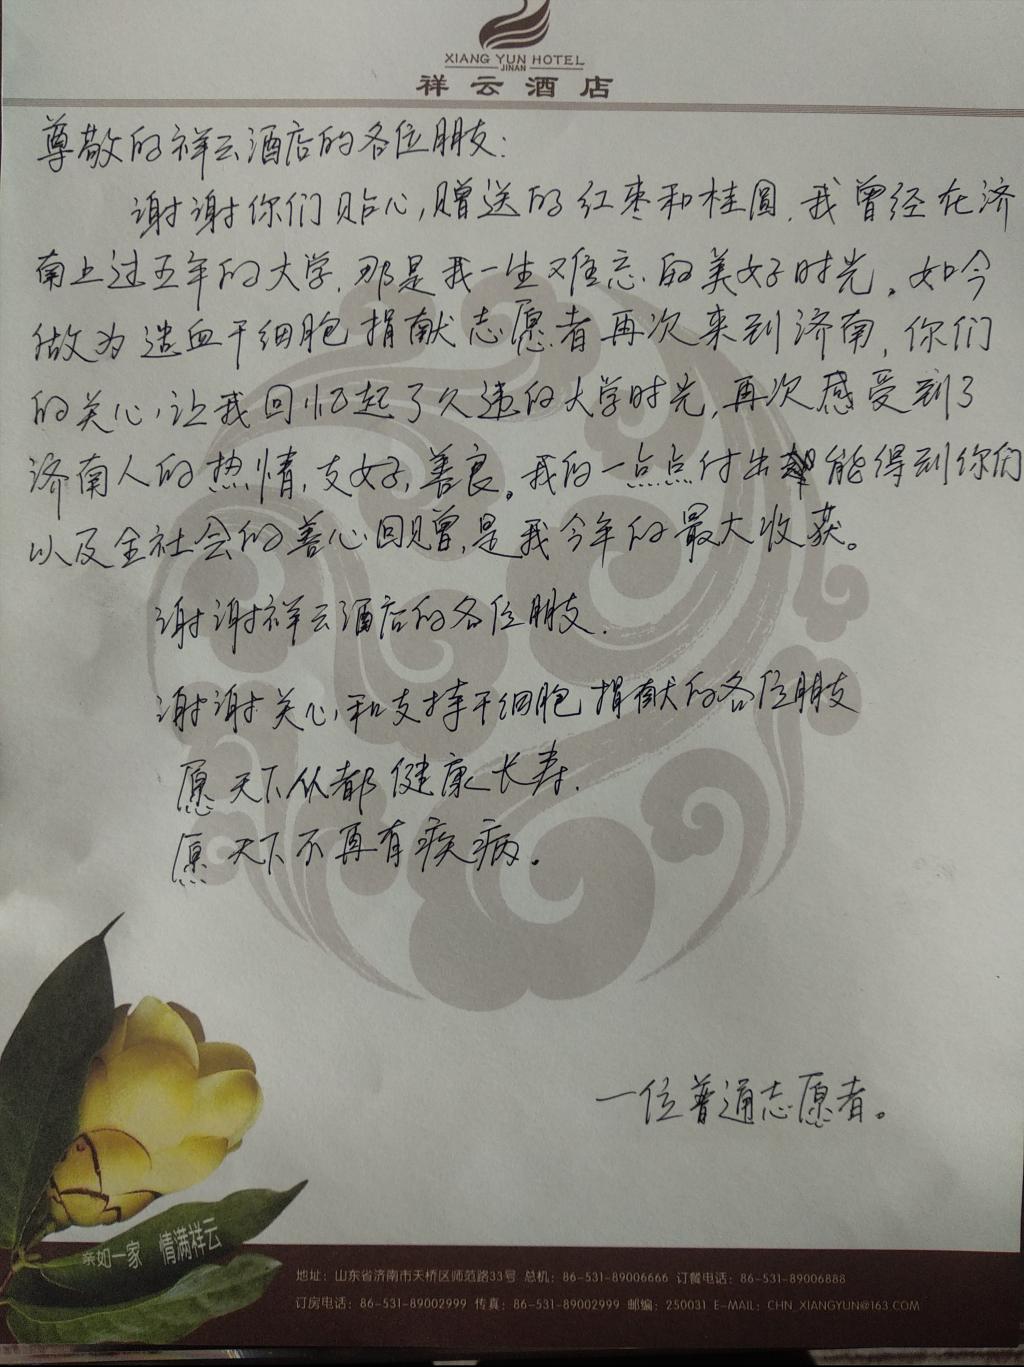 XIANG YUN HOTEL
JINAN
祥云酒店
尊敬的祥云酒店的各位朋友:
谢谢你们贴心,赠送的红枣和桂圆.我曾经在济
南上过五年的大学.那是我一生难忘的美好时光。如今
做为造血干细胞捐献志愿者再次来到济南,你们
的关心,让我回忆起了久违的大学时光,再次感受到了
济南人的热情,友好,善良。我的一点点付出能得到你们
以及全社会的善心回赠,是我今年的最大收获。
谢谢祥云酒店的各位朋友.
谢谢关心和支持干细胞捐献的各位朋友
愿天下人都健康长寿.
愿天下不再有疾病。
一位普通志愿者。
亲如一家 情满祥云
地址：山东省济南市天桥区师范路33号 总机：86-531-89006666 订餐电话：86-531-89006888
订房电话：86-531-89002999 传真：86-531-89002999 邮编：250031 E-MAIL：CHN_XIANGYUN@163.COM